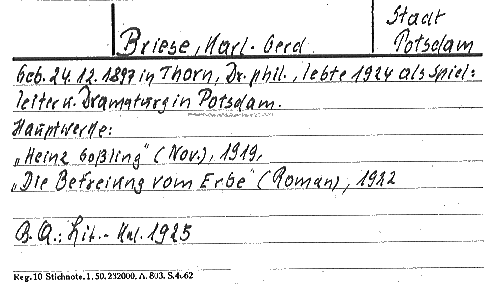 Stadt
Briese, Karl-Gerd Potsdam
Geb. 24.12.1897 in Thorn, Dr. phil., lebte 1924 als Spiel=
leiter u. Dramaturg in Potsdam.
Hauptwerke:
„Heinz Goßling" (Nov.), 1919,
„Die Befreiung vom Erbe" (Roman), 1922
B.Q.: Lit.-Kal. 1925
Reg. 10 Stichnote. 1. 50. 232000. A. 803. S. 4662